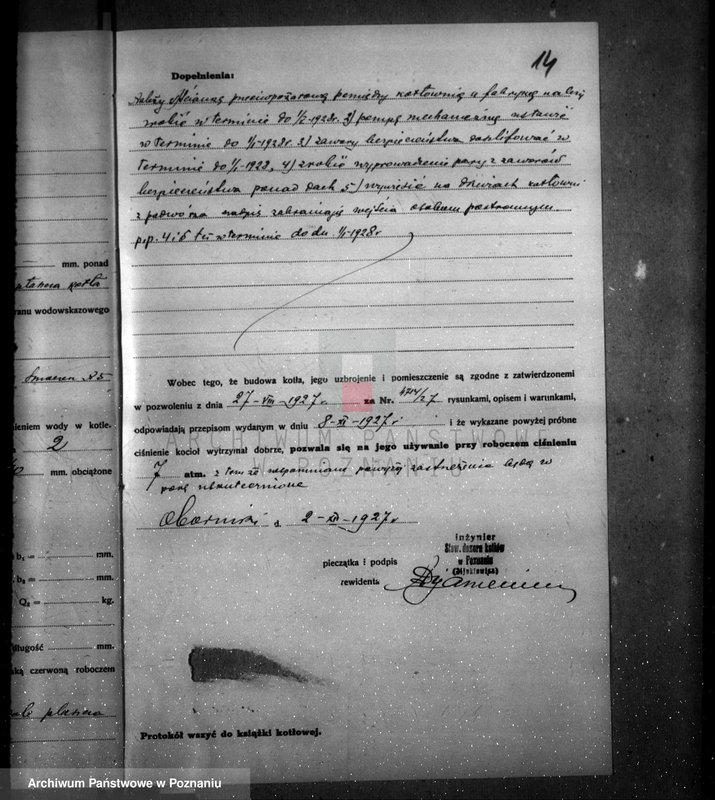 14
Dopełnienia:
Należy ścianę przeciwpożarową pomiędzy kotłownią a fabryką należy
zrobić w terminie do 1/I-1928r. 2) pompę mechaniczną ustawić
w terminie do 1/I-1928r. 3) zawory bezpieczeństwa doszlifować w
terminie do 1/I-1928, 4) zrobić wyprowadzenie pary z zaworów
bezpieczeństwa ponad dach, 5) na drzwiach kotłowni
z podwórza napis zabraniają wejścia osobom postronnym
p.p. 4 i 5 też w terminie do dn 1/I-1928r
mm. ponad
kotła
ranu wodowskazowego
N 5
nieniem wody w kotle.
2
mm. obciążone
b₁ = mm.
b₂ = mm.
Q₂ = kg.
długość mm.
ką czerwoną roboczem
Wobec tego, że budowa kotła, jego uzbrojenie i pomieszczenie są zgodne z zatwierdzonemi
w pozwoleniu z dnia 27-VIII-1927r. za Nr. 4714/27 rysunkami, opisem i warunkami,
odpowiadają przepisom wydanym w dniu 8-XI-1927r i że wykazane powyżej próbne
ciśnienie kocioł wytrzymał dobrze, pozwala się na jego używanie przy roboczem ciśnieniu
7 atm. z tem że wspomniane powyżej zastrzeżenia będą w
porę uskutecznione
Oborniki d. 2-XII-1927r.
pieczątka i podpis
rewidenta
inżynier
Stow. dozoru kotłów
w Poznaniu
Protokół wszyć do książki kotłowej.
ARCHIWUM PAŃSTWOWE
W POZNANIU
Archiwum Państwowe w Poznaniu